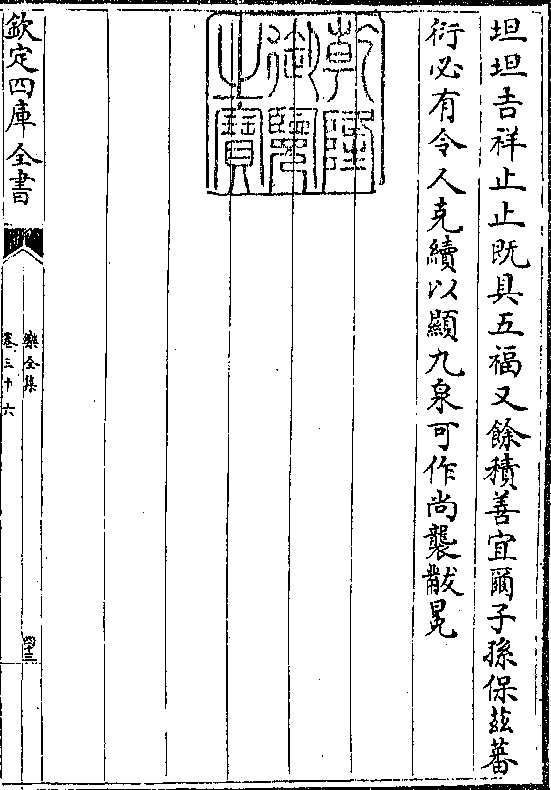 坦坦吉祥止止既具五福又餘積善宜爾子孫保茲蕃
衍必有令人克續以顯九泉可作尚襲黻冕
乾隆
御覽
之寶
欽定四庫全書
樂全集
卷三十六
四十三